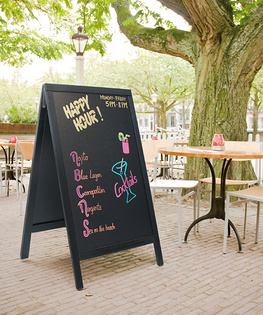 HAPPY
HOUR!
MONDAY-FRIDAY
5PM-8PM
Mojito
Blue Lagoon
Cosmopolitan
Margarita
Sex on the beach
Cocktails